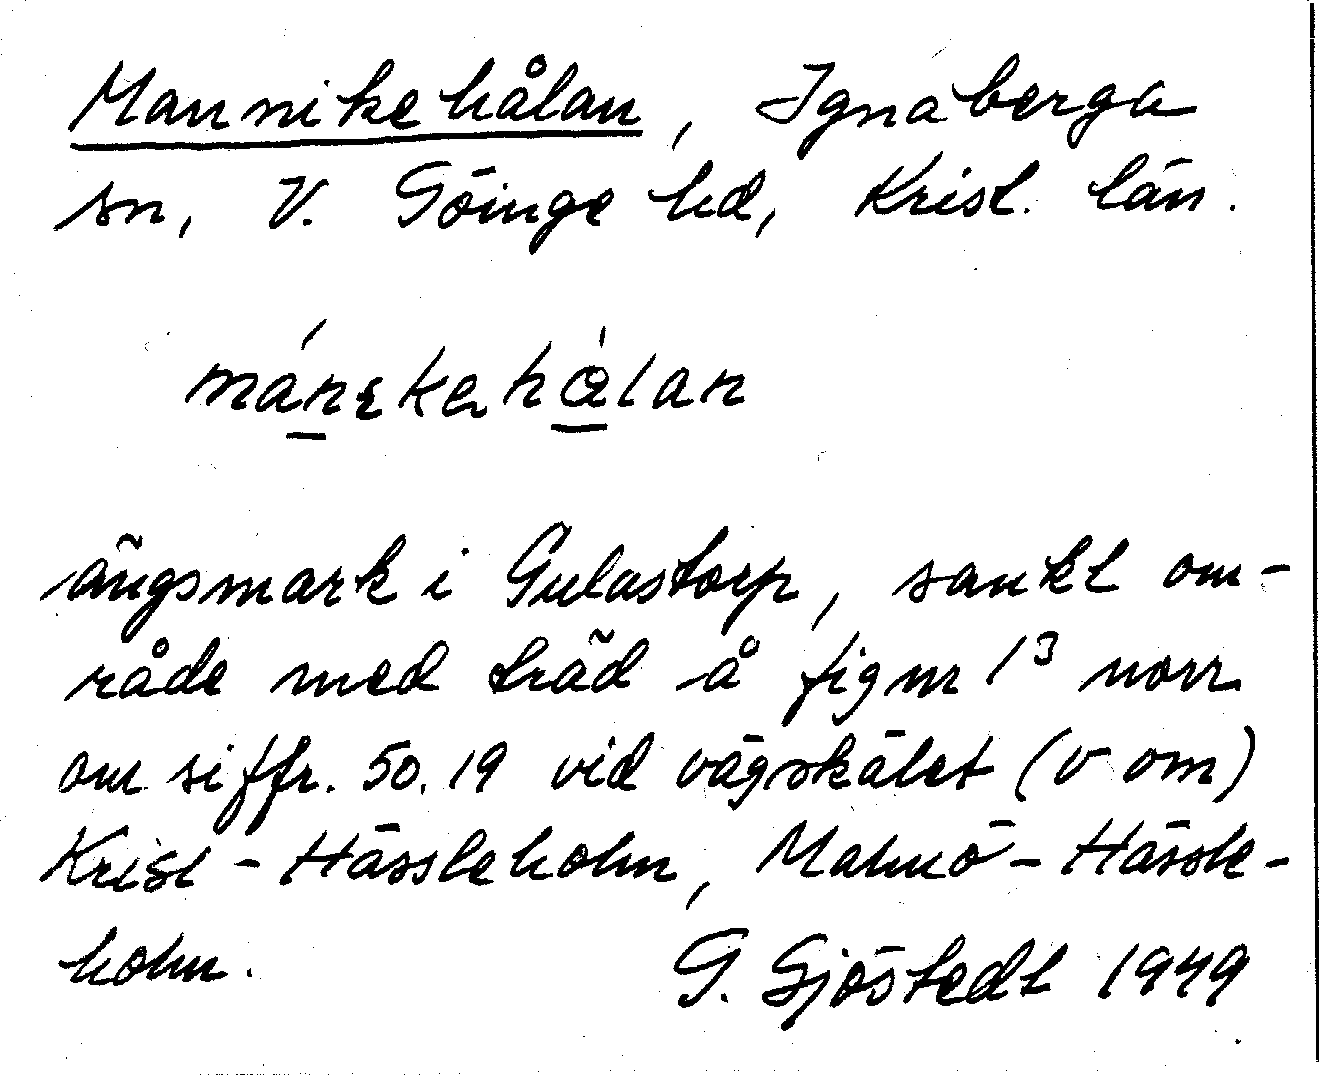 Mannikehålan, Ignaberga
sn, V. Göinge hd, Krist. län.
ängsmark i Gulastorp, sankt om-
råde med träd å figur 1³ norr
om siffr. 50.19 vid vägskälet (v om)
Krist - Hässleholm, Malmö - Hässle-
holm.
G. Sjöstedt 1949